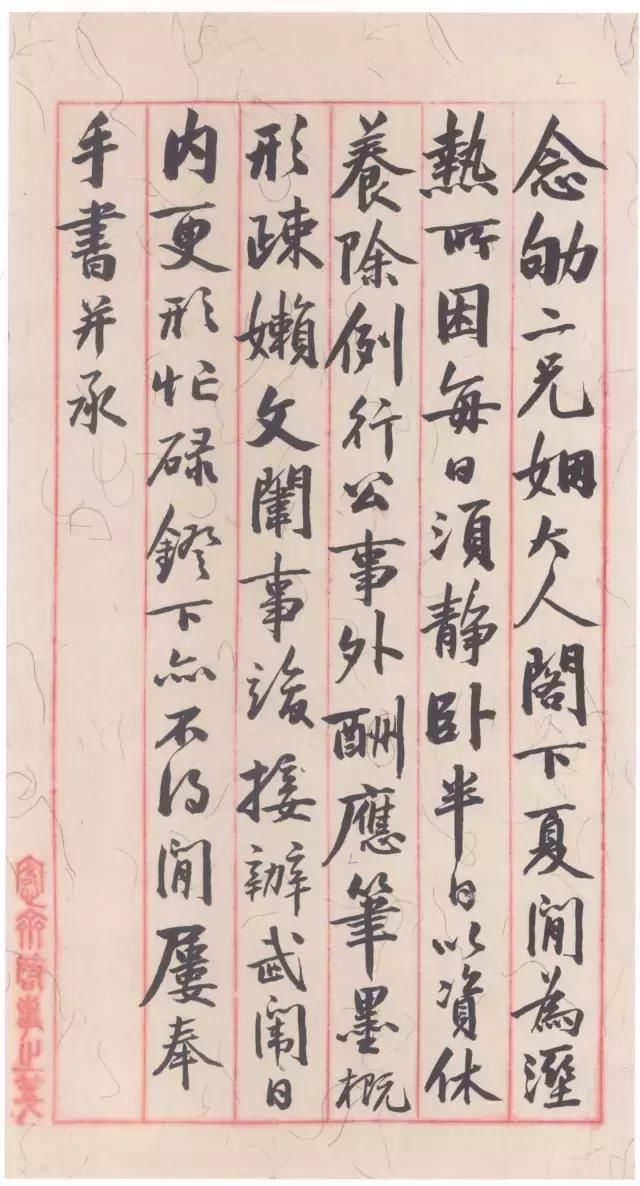 念劬二兄姻大人閣下夏間為溼
熱所困每日須靜臥半日以資休
養除例行公事外酬應筆墨概
形疎嬾文闈事竣接辦武闈日
內更形忙碌鐙下亦不得閒屢奉
手書并承
愙齋啓事之箋